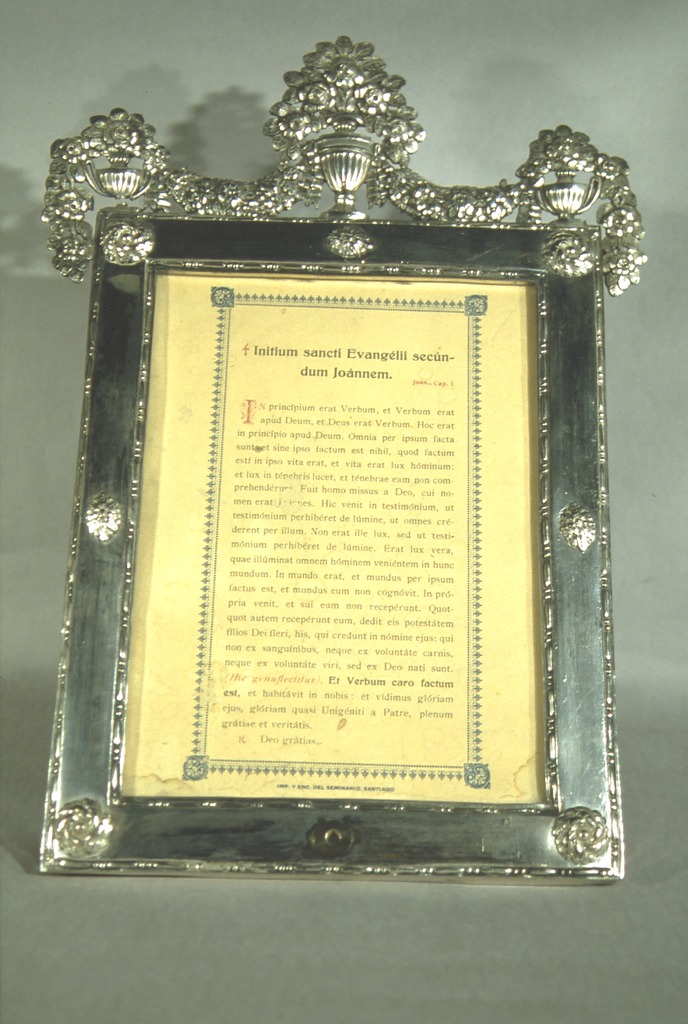 † Initium sancti Evangélii secún-
dum Joánnem.
Joán., Cap. I.
IN princípium erat Verbum, et Verbum erat
apud Deum, et Deus erat Verbum. Hoc erat
in princípio apud Deum. Omnia per ipsum facta
sunt, et sine ipso factum est nihil, quod factum
est: in ipso vita erat, et vita erat lux hóminum:
et lux in ténebris lucet, et ténebrae eam non com-
prehendérunt. Fuit homo missus a Deo, cui no-
men erat Hic venit in testimónium, ut
testimónium perhibéret de lúmine, ut omnes cré-
derent per illum. Non erat ille lux, sed ut testi-
mónium perhibéret de lúmine. Erat lux vera,
quae illúminat omnem hóminem veniéntem in hunc
mundum. In mundo erat, et mundus per ipsum
factus est, et mundus eum non cognóvit. In pró-
pria venit, et sui eum non recepérunt. Quot-
quot autem recepérunt eum, dedit eis potestátem
fílios Dei fíeri, his, qui credunt in nómine ejus: qui
non ex sanguínibus, neque ex voluntáte carnis,
neque ex voluntáte viri, sed ex Deo nati sunt.
(Hic genuflectitur). Et Verbum caro factum
est, et habitávit in nobis: et vídimus glóriam
ejus, glóriam quasi Unigéniti a Patre, plenum
grátiae et veritátis.
℟. Deo grátias.
IMP. Y ENC. DEL SEMINARIO, SANTIAGO